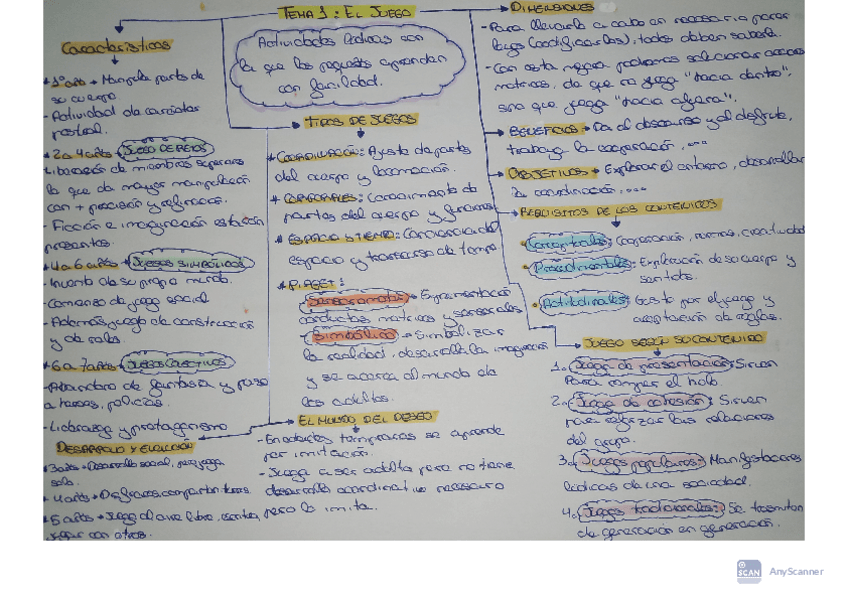 TEMA 1: EL JUEGO
Actividades lúdicas son
la que los pequeños aprenden
con finalidad.
Características
1º año → Manipula partes de
su cuerpo.
- Actividad de carácter
2 a 4 años → JUEGO DE RETOS
Liberación de miembros superiores
la que da mayor manipulación
con + precisión y
- Ficción e imaginación están
presentes.
4 a 6 años → JUEGOS SIMBÓLICOS
- Invento de su propio mundo.
- Comienzo de juego social
- Además juego de construcción
y de roles.
6 a 7 años → JUEGOS COLECTIVOS
- Abandono de fantasía y paso
a héroes, policías.
- Liderazgo y protagonismo
DESARROLLO Y EVOLUCIÓN
3 años → Desarrollo social, pero juega
solo.
4 años →
5 años → Juego al aire libre,
jugar con otros.
TIPOS DE JUEGOS
COORDINACIÓN: Ajuste de partes
del cuerpo y locomoción.
CORPORALES: Conocimiento de
partes del cuerpo y funciones
ESPACIO Y TIEMPO: Conciencia del
espacio y transcurso de tiempo.
PIAGET:
- Sensoriomotor → Experimentación
conductas motrices y sensoriales
- Simbólico → Simbolizar
la realidad, desarrolla la imaginación
y se acerca al mundo de
los adultos.
EL MUNDO DEL DESEO
- En edades tempranas se aprende
por imitación.
- Juega a ser adulto pero no tiene
desarrollo coordinativo necesario
pero lo imita.
DIMENSIONES
- Para llevarlo a cabo es necesario poner
leyes (codificarlos), todos deben saberla.
- Con esta mejora podremos solucionar
motrices, de que no juega "hacia dentro",
sino que juega "hacia afuera".
BENEFICIOS → Da el descanso y al disfrute,
trabaja la cooperación, ...
OBJETIVOS → Explorar el entorno, desarrollar
la coordinación, ...
REQUISITOS DE LOS CONTENIDOS
Conceptuales: Cooperación, normas, creatividad
Procedimentales: Exploración de su cuerpo y
sentidos.
Actitudinales: Gusto por el juego y
aceptación de reglas.
JUEGO SEGÚN SU CONTENIDO
1. Juego de presentación: Sirven
para romper el hielo.
2. Juego de cohesión: Sirven
para reforzar las relaciones
del grupo.
3. Juegos populares: Manifestaciones
lúdicas de una sociedad.
4. Juegos tradicionales: Se transmiten
de generación en generación.
SCAN
AnyScanner